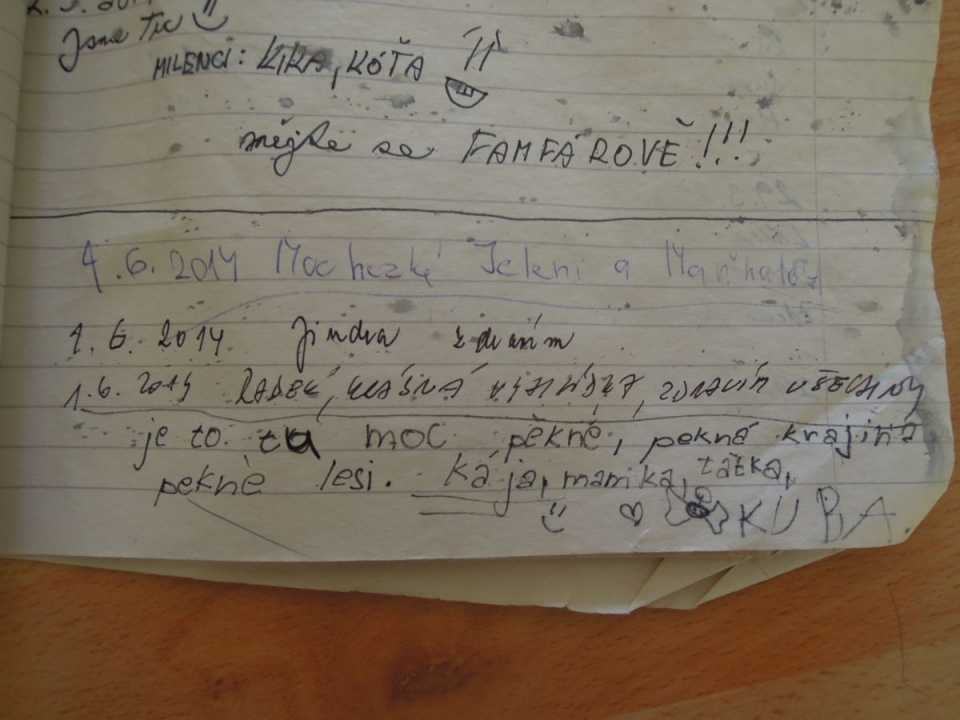 Jsme Tu
MILENCI: KIKA, KÓŤA
mějte se FAMFÁROVĚ!!!
1.6.2014 Moc hezké Jeleni a
1.6.2014 Jindra zdravím
1.6.2014 RADEK, KRÁSNÁ VYHLÍDKA, ZDRAVÍM VŠECHNY
je to. tu moc pěkné, pekná krajina
pekné lesi. Kája, mamka, tátka,
KUBA.